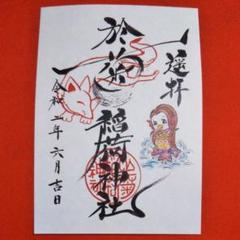 遥拝
於菊稲荷神社
令和二年六月吉日